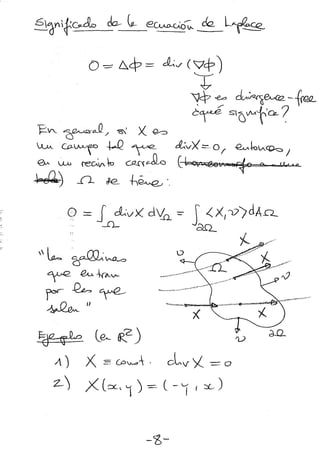 Significado de la ecuación de Laplace
0 = Δϕ = div (∇ϕ)
∇ϕ es divergence-free
¿qué significa?
En general, si X es
un campo tal que divX = 0, entonces,
en un recinto cerrado
Ω se tiene:
0 = ∫_Ω divX dV_Ω = ∫_∂Ω <X, ν> dA_Ω
"las gallinas
que entran
por las que
salen"
X
ν
Ω
X
ν
X
X
ν
∂Ω
Ejemplo (en ℝ²)
1) X = const. divX = 0
2) X(x, y) = (-y, x)
-8-